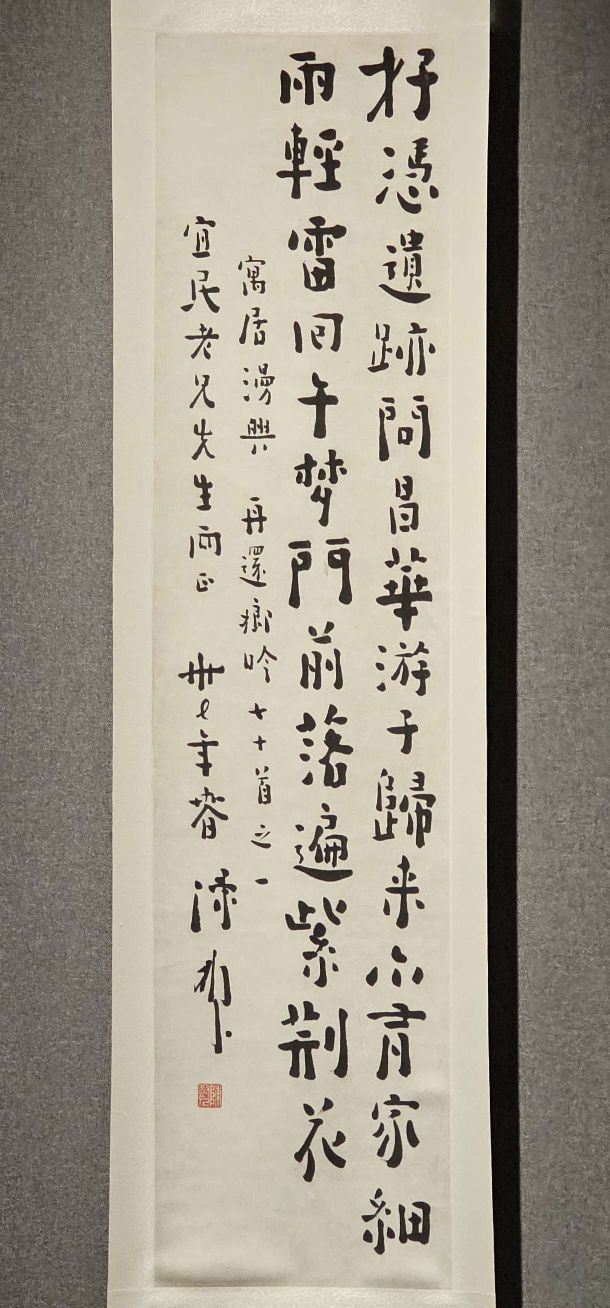 好憑遺跡問昌華游子歸来亦有家細
雨輕雷回午梦門前落遍紫荆花
寓居漫興 再還鄉吟七十首之一
宜民老兄先生两正 卅七年春 陳融